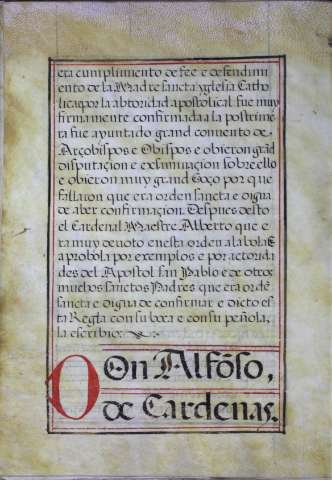 era cumplimiento de fee e defendimi
ento de la Madre sancta yglesia Catho
lica, por la abtoridad apostolical fue muy
firmamente confirmada a la postrime
ra fue ayuntado grand convento de
Arçobispos e Obispos e obieron grãd
disputaçion e examinaçion sobre ello
e obieron muy grand Gozo por que
fallaron que era orden sancta e digna
de aber confirmaçion. Despues desto
el Cardenal Maestre Alberto que e
ra muy devoto en esta orden alabola e
aprobola por exemplos e por actorida
des del Apostol san Pablo e de otros
muchos sanctos Padres que era ordẽ
sancta e digna de confirmar e dicto es
ta Regla con su boca e con su peñola,
la escribio.
DOn Alfõso,
de Cardenas.